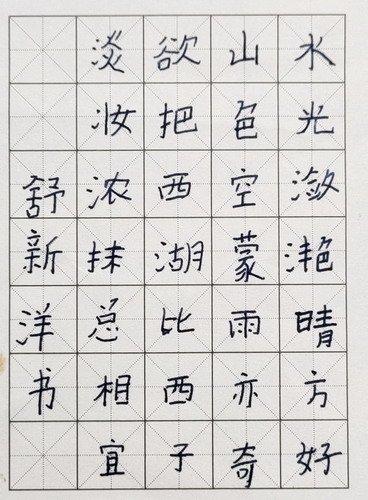 水光潋滟晴方好
山色空蒙雨亦奇
欲把西湖比西子
淡妆浓抹总相宜
舒新洋书